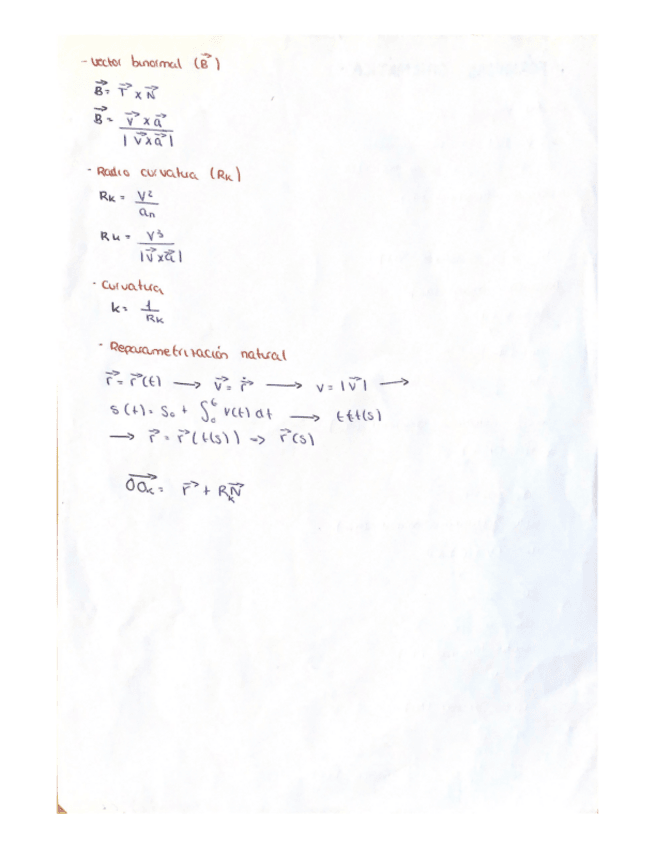 - Vector binormal (B⃗)
B⃗ = T⃗ x N⃗
B⃗ = v⃗ x a⃗ / |v⃗ x a⃗|
- Radio curvatua (Rk)
Rk = v² / an
Rk = v³ / |v⃗ x a⃗|
- Curvatura
k = 1 / Rk
- Reparametrización natural
r⃗ = r⃗(t) → v⃗ = ṙ⃗ → v = |v⃗| →
s(t) = s₀ + ∫₀ᵗ v(t) dt → t = t(s)
→ r⃗ = r⃗(t(s)) => r⃗(s)
OOk⃗ = r⃗ + RkN⃗